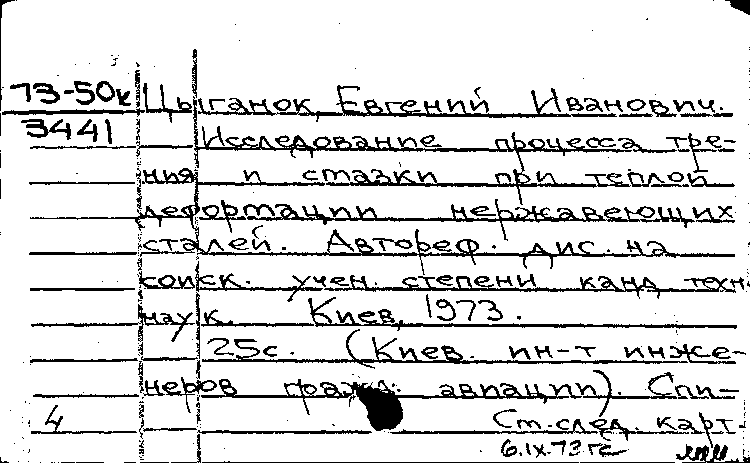 73-50к Цыганок, Евгений Иванович.
3441 Исследование процесса тре-
ния и смазки при теплой
деформации нержавеющих
сталей. Автореф. дис. на
соиск. учен. степени канд техн.
наук. Киев, 1973.
25с. (Киев. ин-т инже-
неров гражд. авиации). Спи-
4 См.след. карт.
6.IX.73 гс